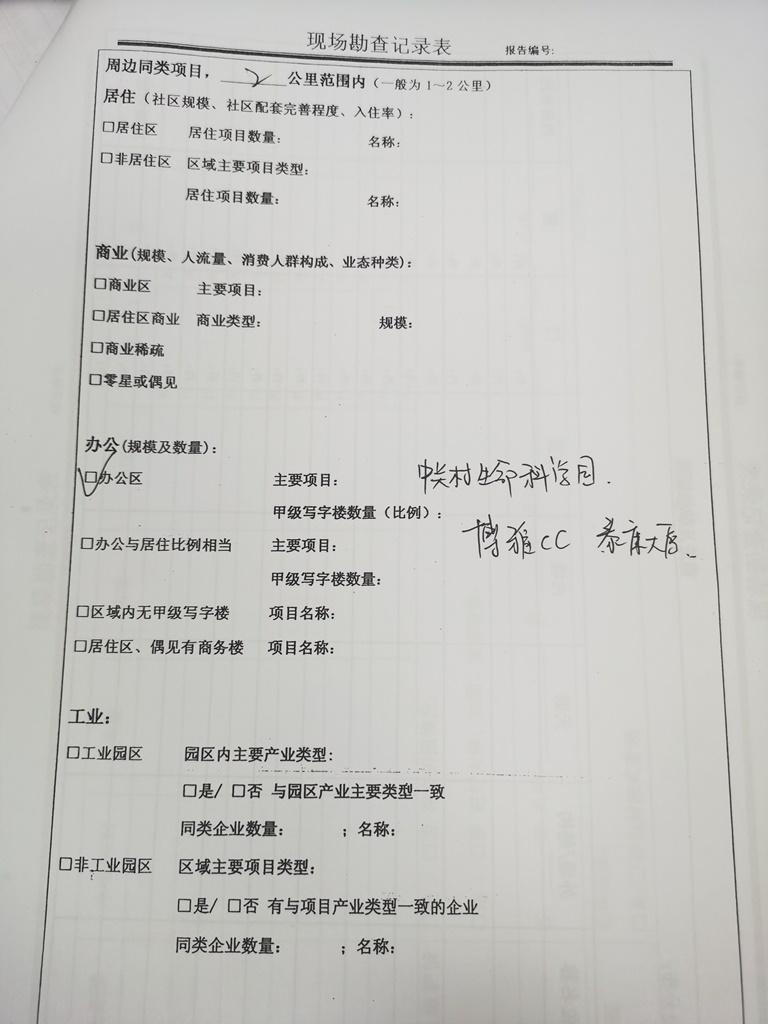 现场勘查记录表 报告编号:
周边同类项目，2公里范围内（一般为1～2公里）
居住（社区规模、社区配套完善程度、入住率）:
□居住区 居住项目数量: 名称:
□非居住区 区域主要项目类型:
居住项目数量: 名称:
商业(规模、人流量、消费人群构成、业态种类):
□商业区 主要项目:
□居住区商业 商业类型: 规模:
□商业稀疏
□零星或偶见
办公(规模及数量):
☑办公区 主要项目: 中关村生命科学园.
甲级写字楼数量（比例）: 博雅CC 泰康大厦、
□办公与居住比例相当 主要项目:
甲级写字楼数量:
□区域内无甲级写字楼 项目名称:
□居住区、偶见有商务楼 项目名称:
工业:
□工业园区 园区内主要产业类型:
□是/ □否 与园区产业主要类型一致
同类企业数量: ；名称:
□非工业园区 区域主要项目类型:
□是/ □否 有与项目产业类型一致的企业
同类企业数量: ；名称: